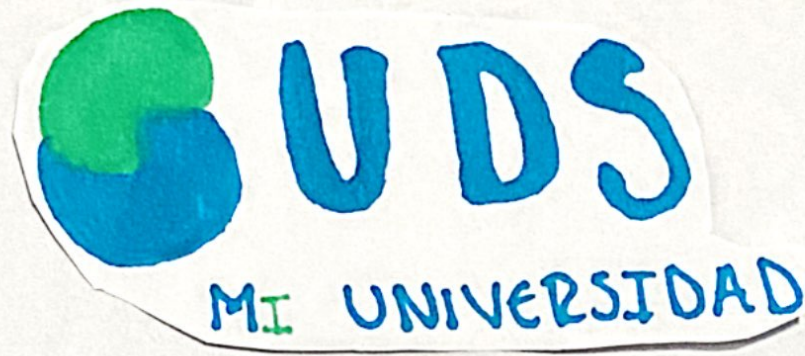 UDS
MI UNIVERSIDAD